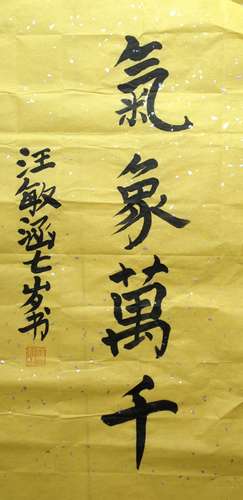 氣象萬千
汪敏涵七岁书